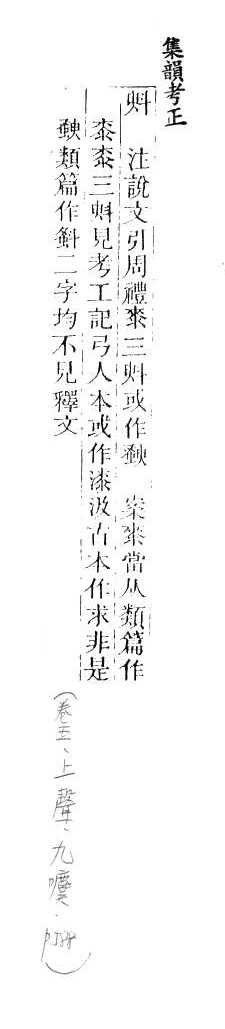 集韻考正
㪺 注說文引周禮桼三㪺或作 案桼當从類篇作
桼桼三㪺見考工記弓人本或作漆汲古本作求非是
類篇作𣂁二字均不見釋文
(卷五、上聲、九噳.p.588)